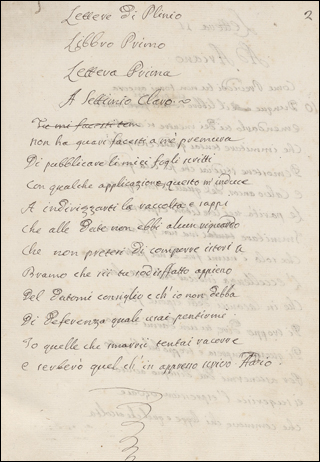 2
Lettere di Plinio
Libbro Primo
Lettera Prima
A Settimio Claro
Tu mi facesti
non ha guari facesti a me premura
Di pubblicare li miei fogli scritti
Con qualche applicazione, questo m'induce
A indirizzarti la raccolta e sappi
Che alle Date non ebbi alcun riguardo
Che non pretesi di comporre istoria
Bramo che sii tu sodisfatto appieno
Del Datomi consiglio e ch'io non debba
Di Deferenza quale usai pentirmi
Io quelle che tentai
e serberò quel ch'in appresso scrivo Addio